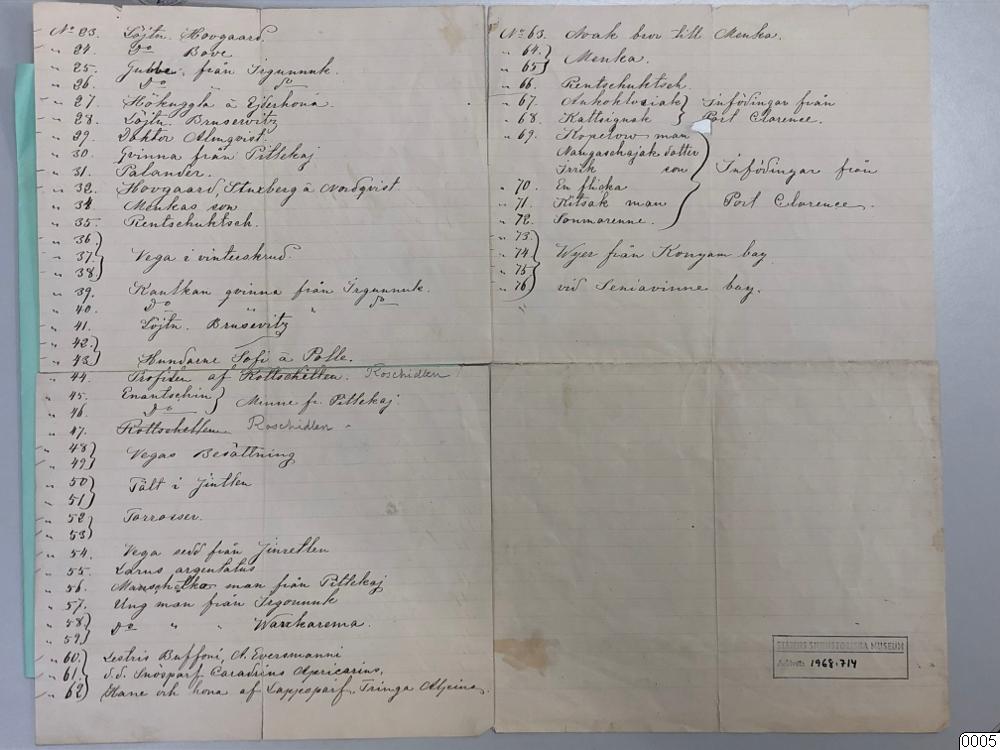 No 23. Löjtn. Hovgaard.
" 24. Do Bove
" 25. Gubbe från Irgunnuk.
" 26. Do " Do
" 27. Hökuggla â Ejderhona.
" 28. Löjtn. Brusevitz
" 29. Doktor Almqvist
" 30. Qvinna från Pittekaj
" 31. Palander.
" 32. Hovgaard, Stuxberg â Nordqvist.
" 34. Menkas son
" 35. Rentschuktsch.
" 36.
" 37. Vega i vinterskrud.
" 38
" 39. Kautkan qvinna från Irgunnuk.
" 40. Do " " Do
" 41. Löjtn. Brusevitz
" 42.
" 43. Hundarne Sofi â Polle.
" 44. Profilen af Rottschetlen. Roschidlen
" 45. Enantschin
" 46. Do Minne fr. Pittekaj.
" 47. Rottschetlen Roschidlen
" 48
" 49 Vegas Besättning
" 50
" 51 Tält i Jintlen
" 52
" 53 Torrosser.
" 54. Vega sedd från Jinretlen
" 55. Larus argentatus
" 56. Manschetko man från Pittekaj
" 57. Ung man från Irgounuk
" 58
" 59 Do " " Warrkarema.
" 60. Lestris Buffoni, A. Eversmanni
" 61. d.d. Snösparf Caradrius Apricarius,
" 62 Hane och hona af Lappsparf, Tringa Alpina,
No 63. Noak bror till Menka.
" 64.
" 65 Menka.
" 66. Rentschuktsch.
" 67. Aukoktosiak Infödingar från
" 68. Kattsignak Port Clarence.
" 69. Kopetow man
Naugaschajak dotter
Irrik son Infödingar från
" 70. En flicka
" 71. Kitsak man Port Clarence.
" 72. Sonmorenne.
" 73.
" 74. Wyer från Konyam bay
" 75
" 76 vid Seniavinne bay.
"
STATENS SJÖHISTORISKA MUSEUM
Arkivnr 1968:714
0005